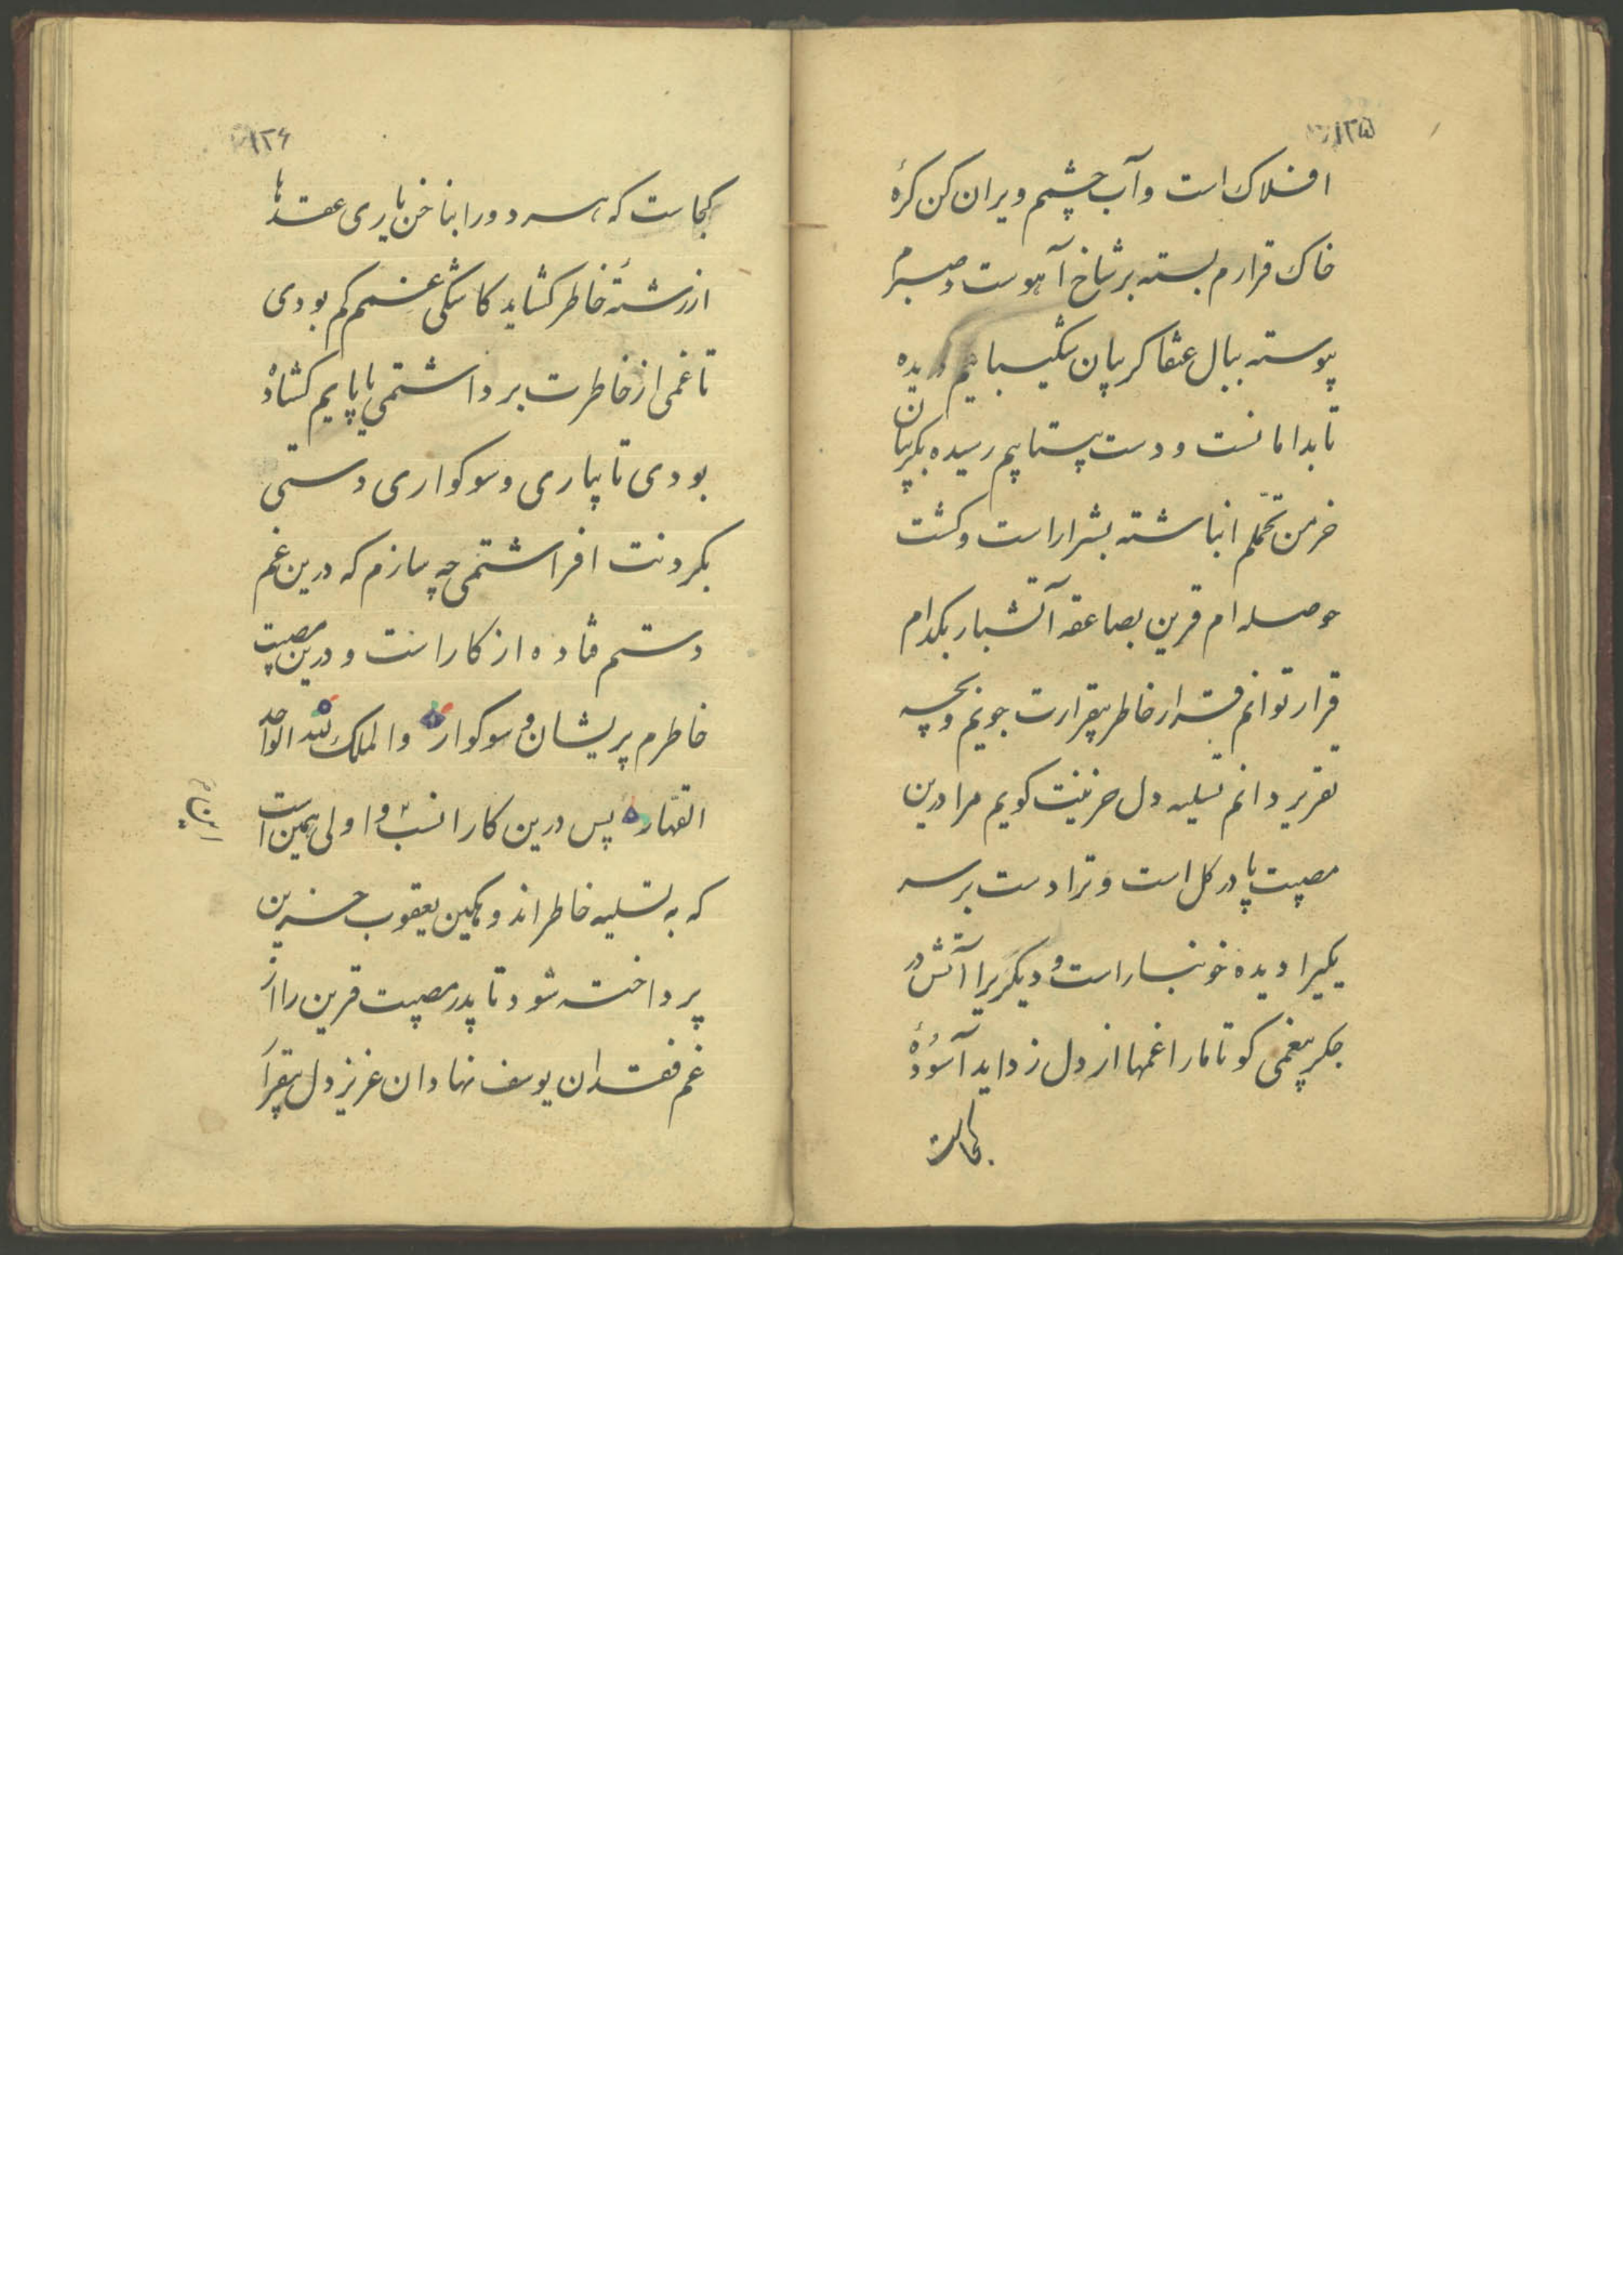 ۱۲۵
افلاک است و آب چشم ویران کن کرهٔ
خاک قرارم بسته بر شاخ آهوست و صبرم
پیوسته ببال عنقا کریبان شکیبایم دریده
تا بدامانست و دست پیتابیم رسیده بکریبان
خرمن تحملم انباشته بشرار است و کشت
حوصله ام قرین بصاعقه آتشبار بکدام
قرار توانم قرار خاطر بیقرارت جویم و بچه
تقریر دانم تسلیه دل حزینت کویم مرا درین
مصیبت پا در کل است و ترا دست بر سر
یکیرا دیده خونبار است و دیکریرا آتش در
جکر بیغمی کو تا مارا غمها از دل زداید آسودهٔ
کجاست
۱۲۶
کجاست که هر دو را بناخن یاری عقدها
از رشتهٔ خاطر کشاید کاشکی غمم کم بودی
تا غمی از خاطرت برداشتمی یا پایم کشاده
بودی تا بیاری و سوکواری دستی
بکردونت افراشتمی چه سازم که درین غم
دستم فتاده از کار است و درین مصیبت
خاطرم پریشان و سوکوار والملک لله الواحد
القهار پس درین کار انسب و اولی همین است
که به تسلیه خاطر اندوهکین یعقوب حزین
پرداخته شود تا پدر مصیبت قرین را از
غم فقدان یوسف نهادان عزیز دل بیقرار